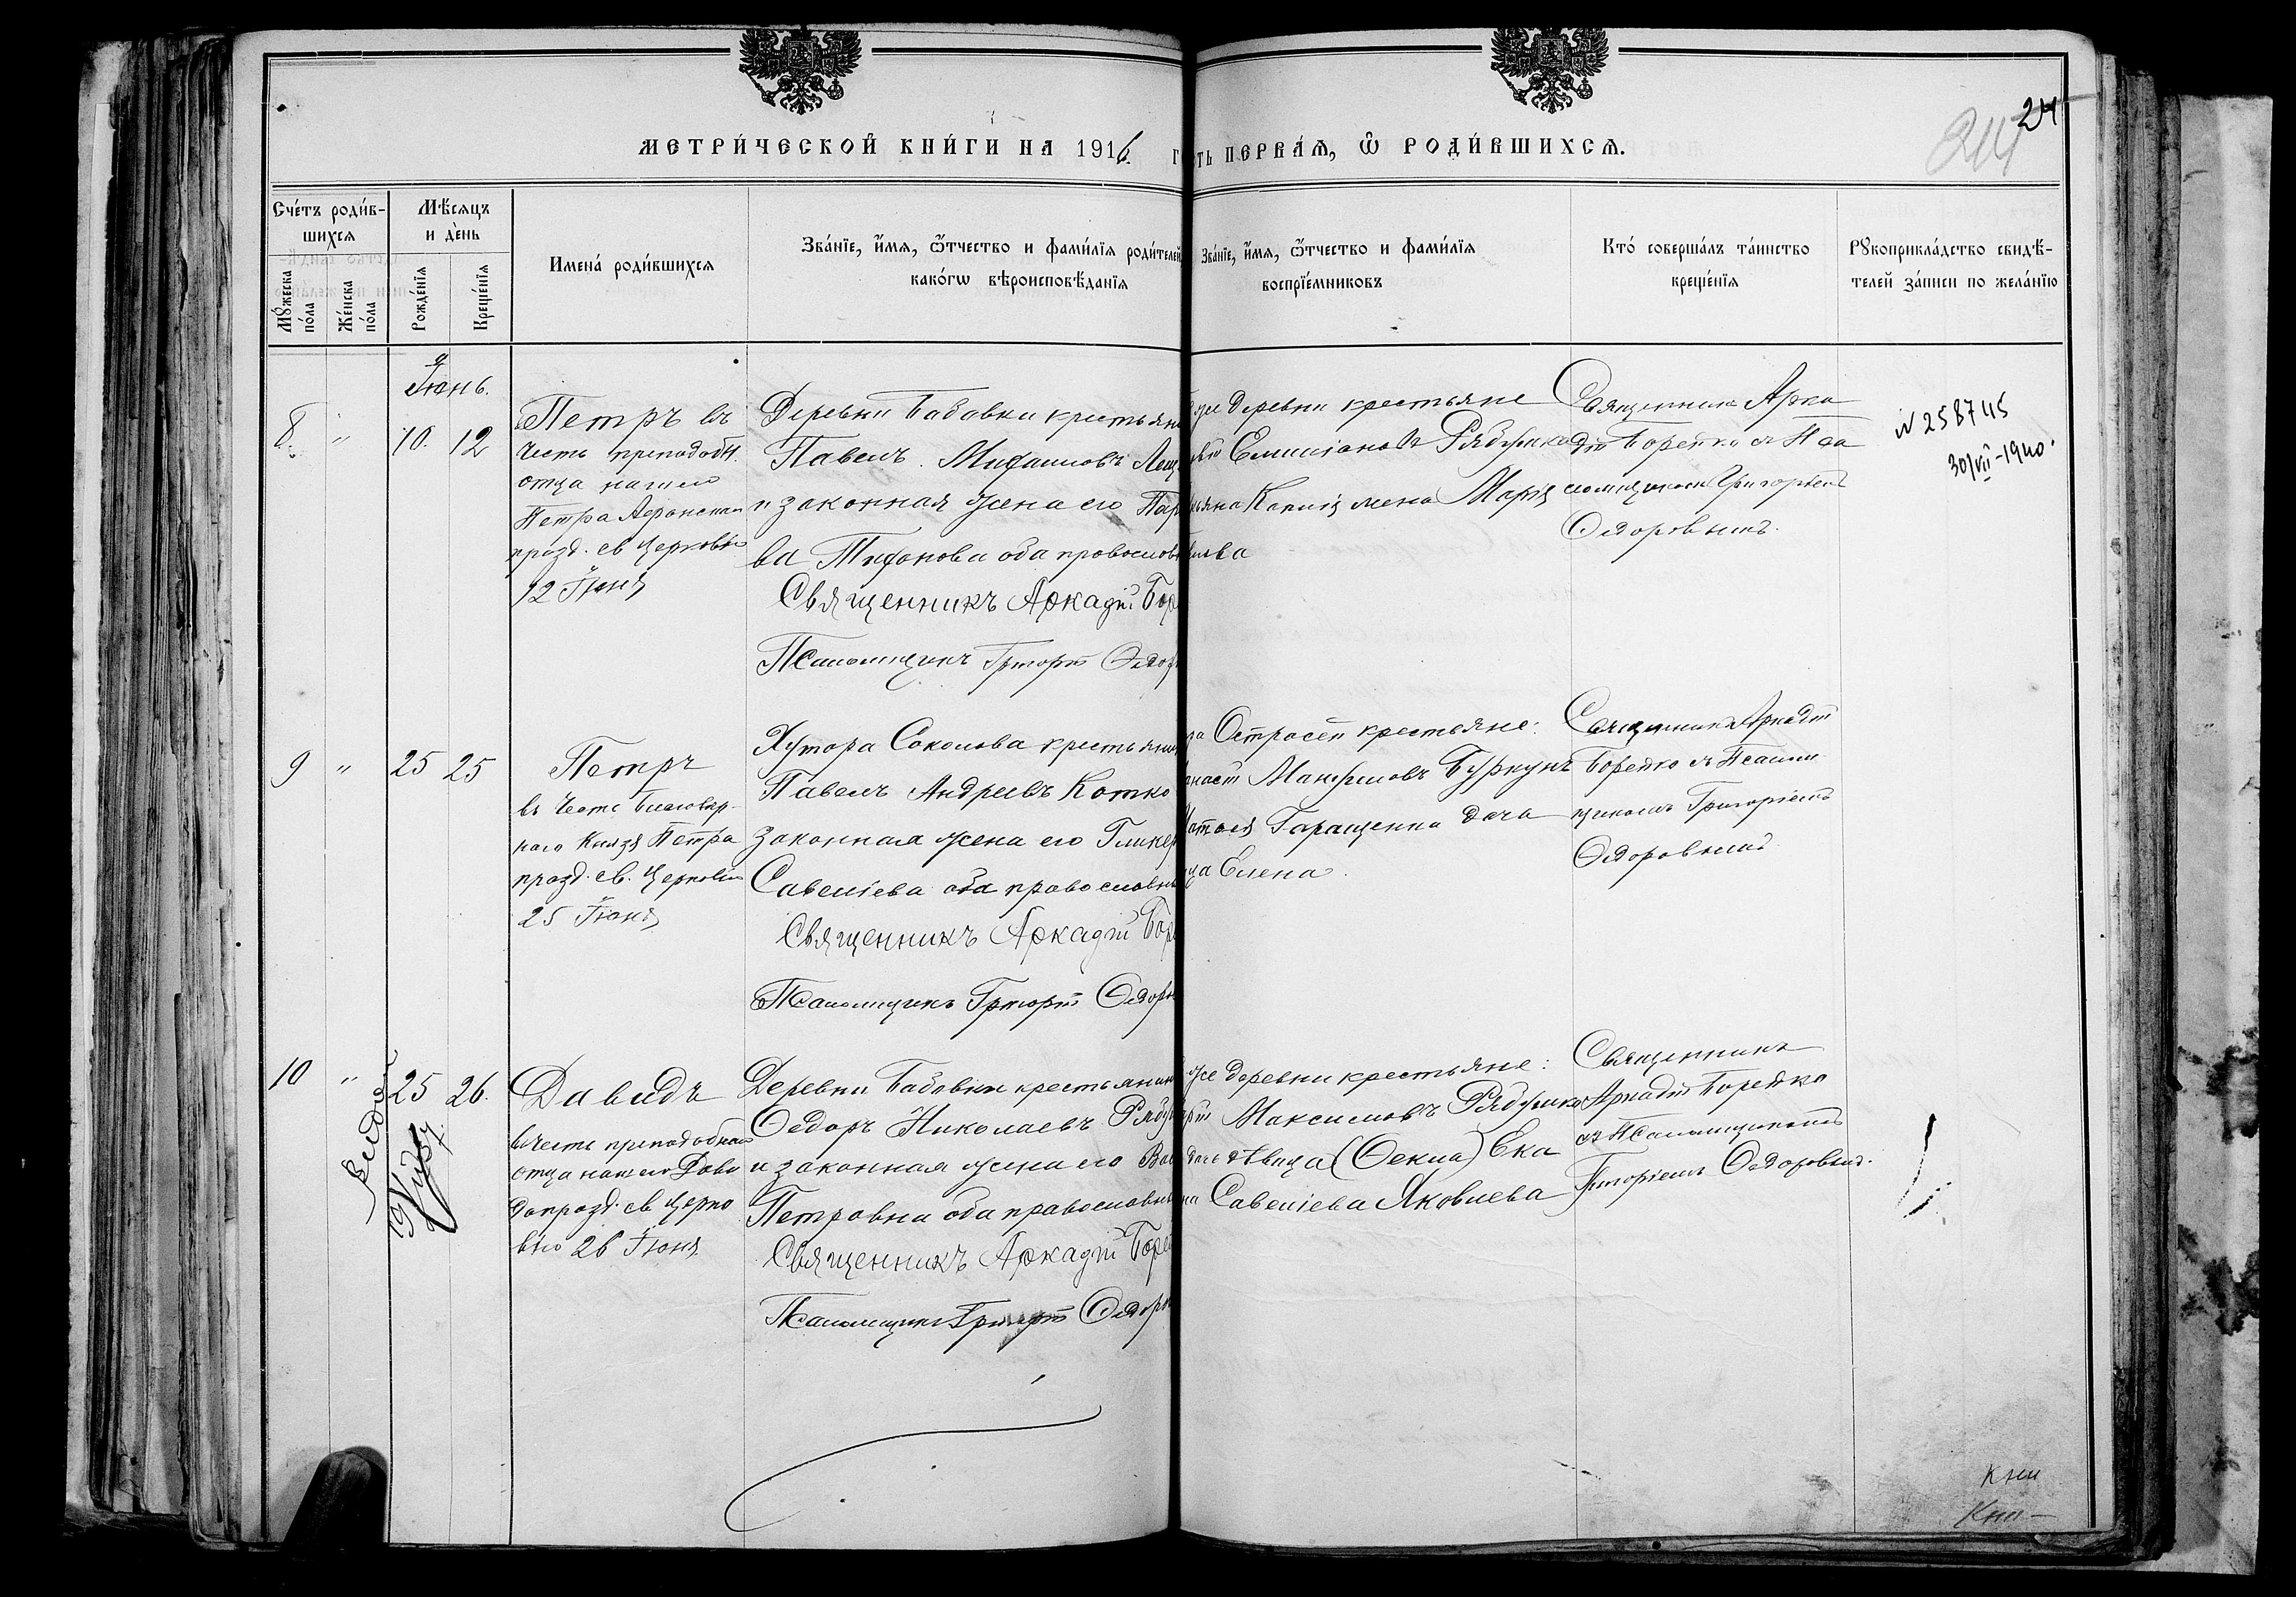 24
24
МЕТРИ́ЧЕСКОЙ КНИ́ГИ НА 1916. Г
ТЬ ПЕРВА́Ѧ, Ѡ РОДИ́ВШИХСѦ.
Сче́тъ роди́в-
шихсѧ
Мꙋ́жеска
по́ла
Же́нска
по́ла
Мѣ́сѧцъ
и де́нь
Рожде́нїѧ
Креще́нїѧ
Имена́ роди́вшихсѧ
Зва́нїе, и́мѧ, ѻ́тчество и фами́лїѧ роди́телей
како́гѡ вѣроисповѣ́данїѧ
Зва́нїе, и́мѧ, ѻ́тчество и фами́лїѧ
воспрїе́мниковъ
Кто́ соверша́лъ та́инство
креще́нїѧ
Рꙋкоприкла́дство свидѣ́-
телей за́писи по жела́нїю
Іюнь.
8. " 10. 12
Петръ въ
честь преподобн.
отца нашего
Петра Афонскаго
празд. св церковью
12 Іюня
Деревни Бабовки крестьяни
Павелъ Михаиловъ Лещ
и законная жена его Пар
ва Тифонова оба православн
Священникъ Аркадій Бор
Псаломщикъ Григорій Ѳедор
же деревни крестьяне
Емиліановъ Рябушко
Марія
Священникъ Арка
дій Борейко съ Пса
ломщикомъ Григоріемъ
Ѳедоровымъ.
N 258745
30/VII-1940.
9 " 25 25
Петръ
въ честь благовѣр-
наго Князя Петра
празд. св. Церковію
25 Іюня
Хутора Соколова крестьянин
Павелъ Андреевъ Котко
законная жена его Гликер
Савеліева оба православн
Священникъ Аркадій Бор
Псаломщикъ Григорій Ѳедоро
ра Остросѣп крестьяне:
Мануиловъ Буркунъ
Гаращенка дочь
ца Елена.
Священникъ Аркадій
Борейко съ Псалом
щикомъ Григоріемъ
Ѳедоровымъ
10 " 25 26.
Давидъ
въ честь преподобнаго
отца нашего Дави
да празд. св церко
вью 26 Іюня
Деревни Бабовки крестьянин
Ѳедоръ Николаевъ Рябу
и законная жена его Вас
Петровна оба православн
Священникъ Аркадій Боре
Псаломщикъ Григорій Ѳедоро
же деревни крестьяне:
Максимовъ Рябушко
дѣвица (Ѳекла) Ека
на Савеліева Яковлева
Священникъ
Аркадій Борейко
съ Псаломщикомъ
Григоріемъ Ѳедоровымъ.
Кни
Кни-